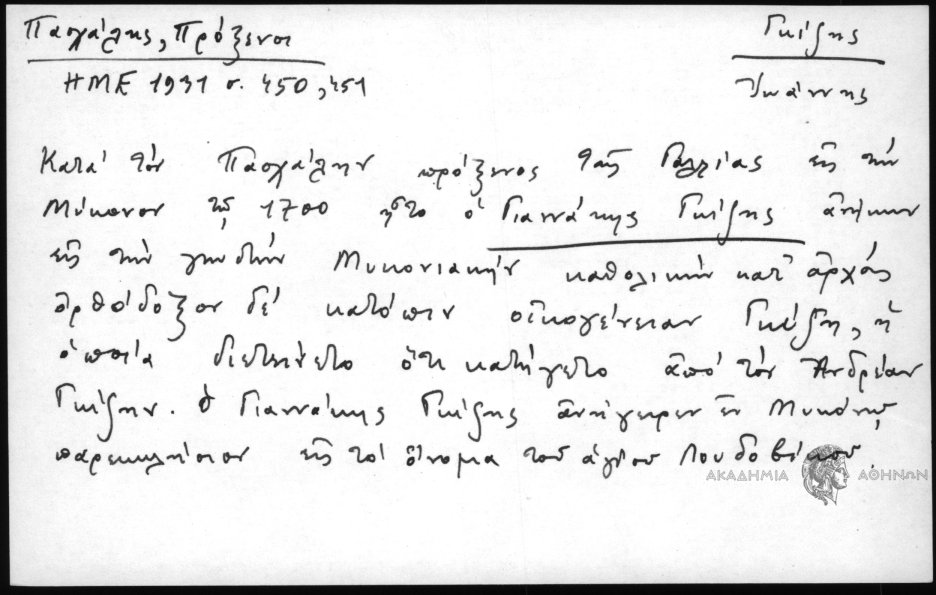 Πασχάλης, Πρόξενοι
Γκίζης
ΗΜΕ 1931 σ. 450, 451
Ἰωάννης
Κατὰ τὸν Πασχάλην πρόξενος τῆς Γαλλίας εἰς τὴν
Μύκονον τῷ 1700 ἦτο ὁ Γιαννάκης Γκίζης ἀνήκων
εἰς τὴν γνωστὴν Μυκονιακὴν καθολικὴν κατ' ἀρχὰς
ὀρθόδοξον δὲ κατόπιν οἰκογένειαν Γκίζη, ἡ
ὁποία διετείνετο ὅτι κατήγετο ἀπὸ τὸν Ἀνδρέαν
Γκίζην. Ὁ Γιαννάκης Γκίζης ἀνήγειρεν ἐν Μυκόνῳ
παρεκκλήσιον εἰς τὸ ὄνομα τοῦ ἁγίου Λουδοβίκου.
ΑΚΑΔΗΜΙΑ ΑΘΗΝΩΝ